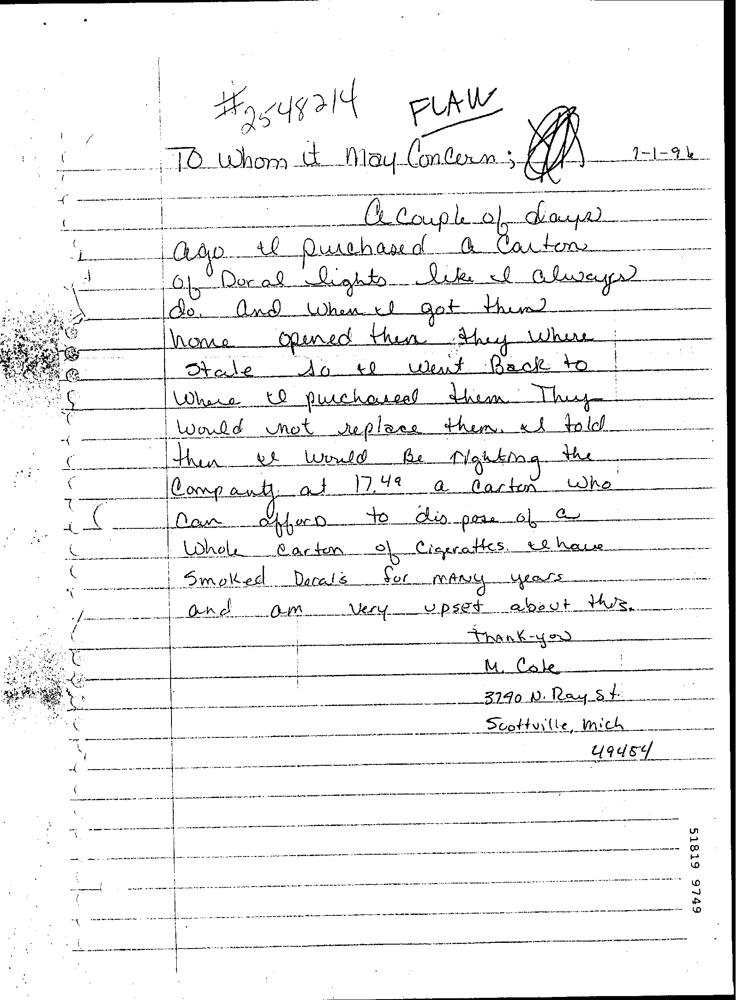 #2548214 FLAW
To whom it May Concern; 7-1-96
A couple of days
ago I purchased a Carton
of Doral lights like I always
do. And when I got them
home opened them they where
Stale so I went Back to
Where I purchased them They
would not replace them. I told
them I would Be righting the
Company. at 17.49 a carton who
can afford to dispose of a
Whole carton of Cigerattes. I have
Smoked Dorals for MANY years
and am very upset about this.
Thank-you
M. Cole
3790 N. Ray St.
Scottville, Mich
49454
51819 9749